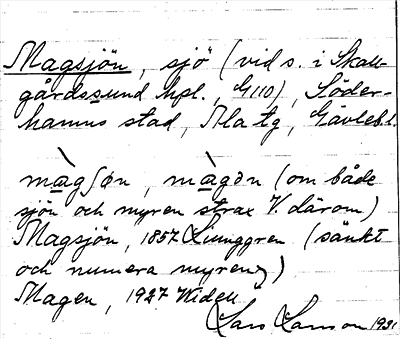 Magsjön, sjö (vid s. i Skall-
gårdssund hpl., G110), Söder-
hamns stad, Ala tg, Gävlebl.
màgʃøn, màgən (om både
sjön och myren strax V. därom)
Magsjön, 1857 Ljunggren (sänkt
och numera myren)
Magen, 1927 Widell
Lars Larsson 1931